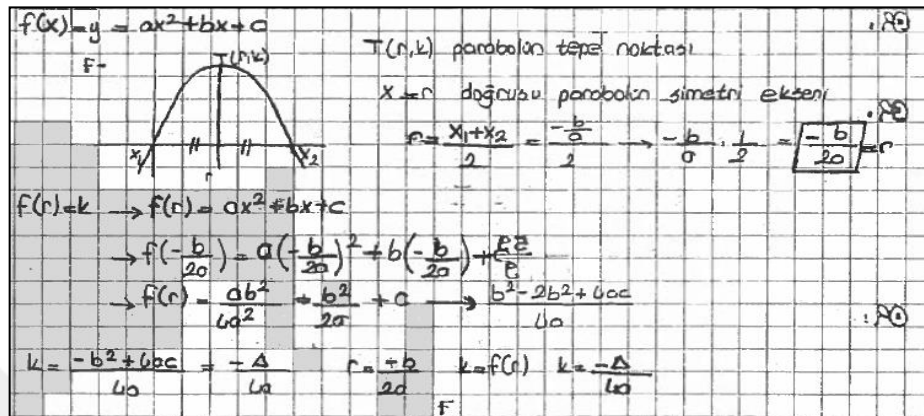 f(x)=y = ax²+bx+c
T(r,k) parabolün tepe noktası
T(r,k)
F-
x=r doğrusu parabolün simetri ekseni
x₁ r x₂
r = (x₁+x₂)/2 = (-b/a)/2 → -b/a · 1/2 = -b/2a = r
f(r)=k → f(r) = ax²+bx+c
→ f(-b/2a) = a(-b/2a)² + b(-b/2a) +
→ f(r) = ab²/4a² - b²/2a + c → (b²-2b²+4ac)/4a
k = (-b²+4ac)/4a = -Δ/4a r = -b/2a k=f(r) k = -Δ/4a
F